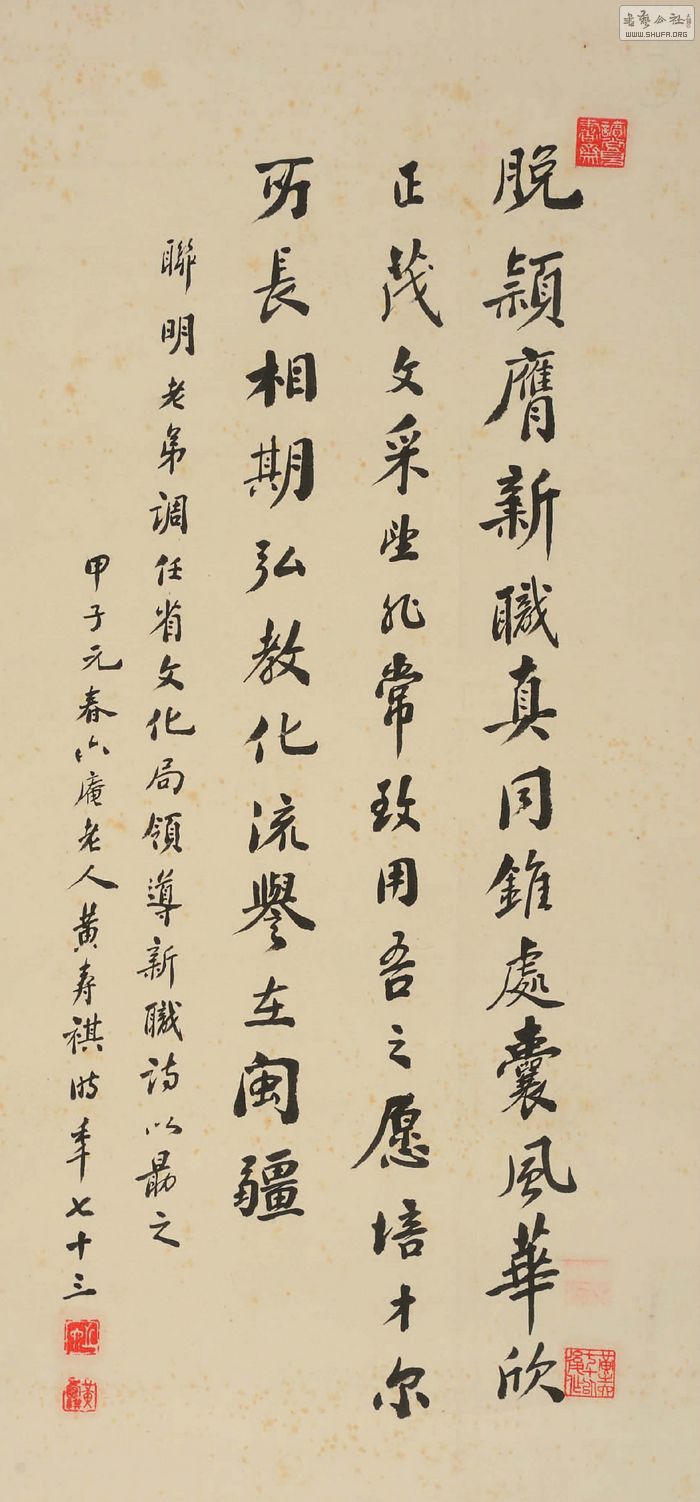 脱穎膺新職真同錐處囊風華欣
正茂文采堂非常致用吾之愿培才尔
所長相期弘教化流譽在閩疆
聯明老弟調任省文化局領導新職诗以勗之
甲子元春六庵老人黄寿祺时年七十三
WWW.SHUFA.ORG